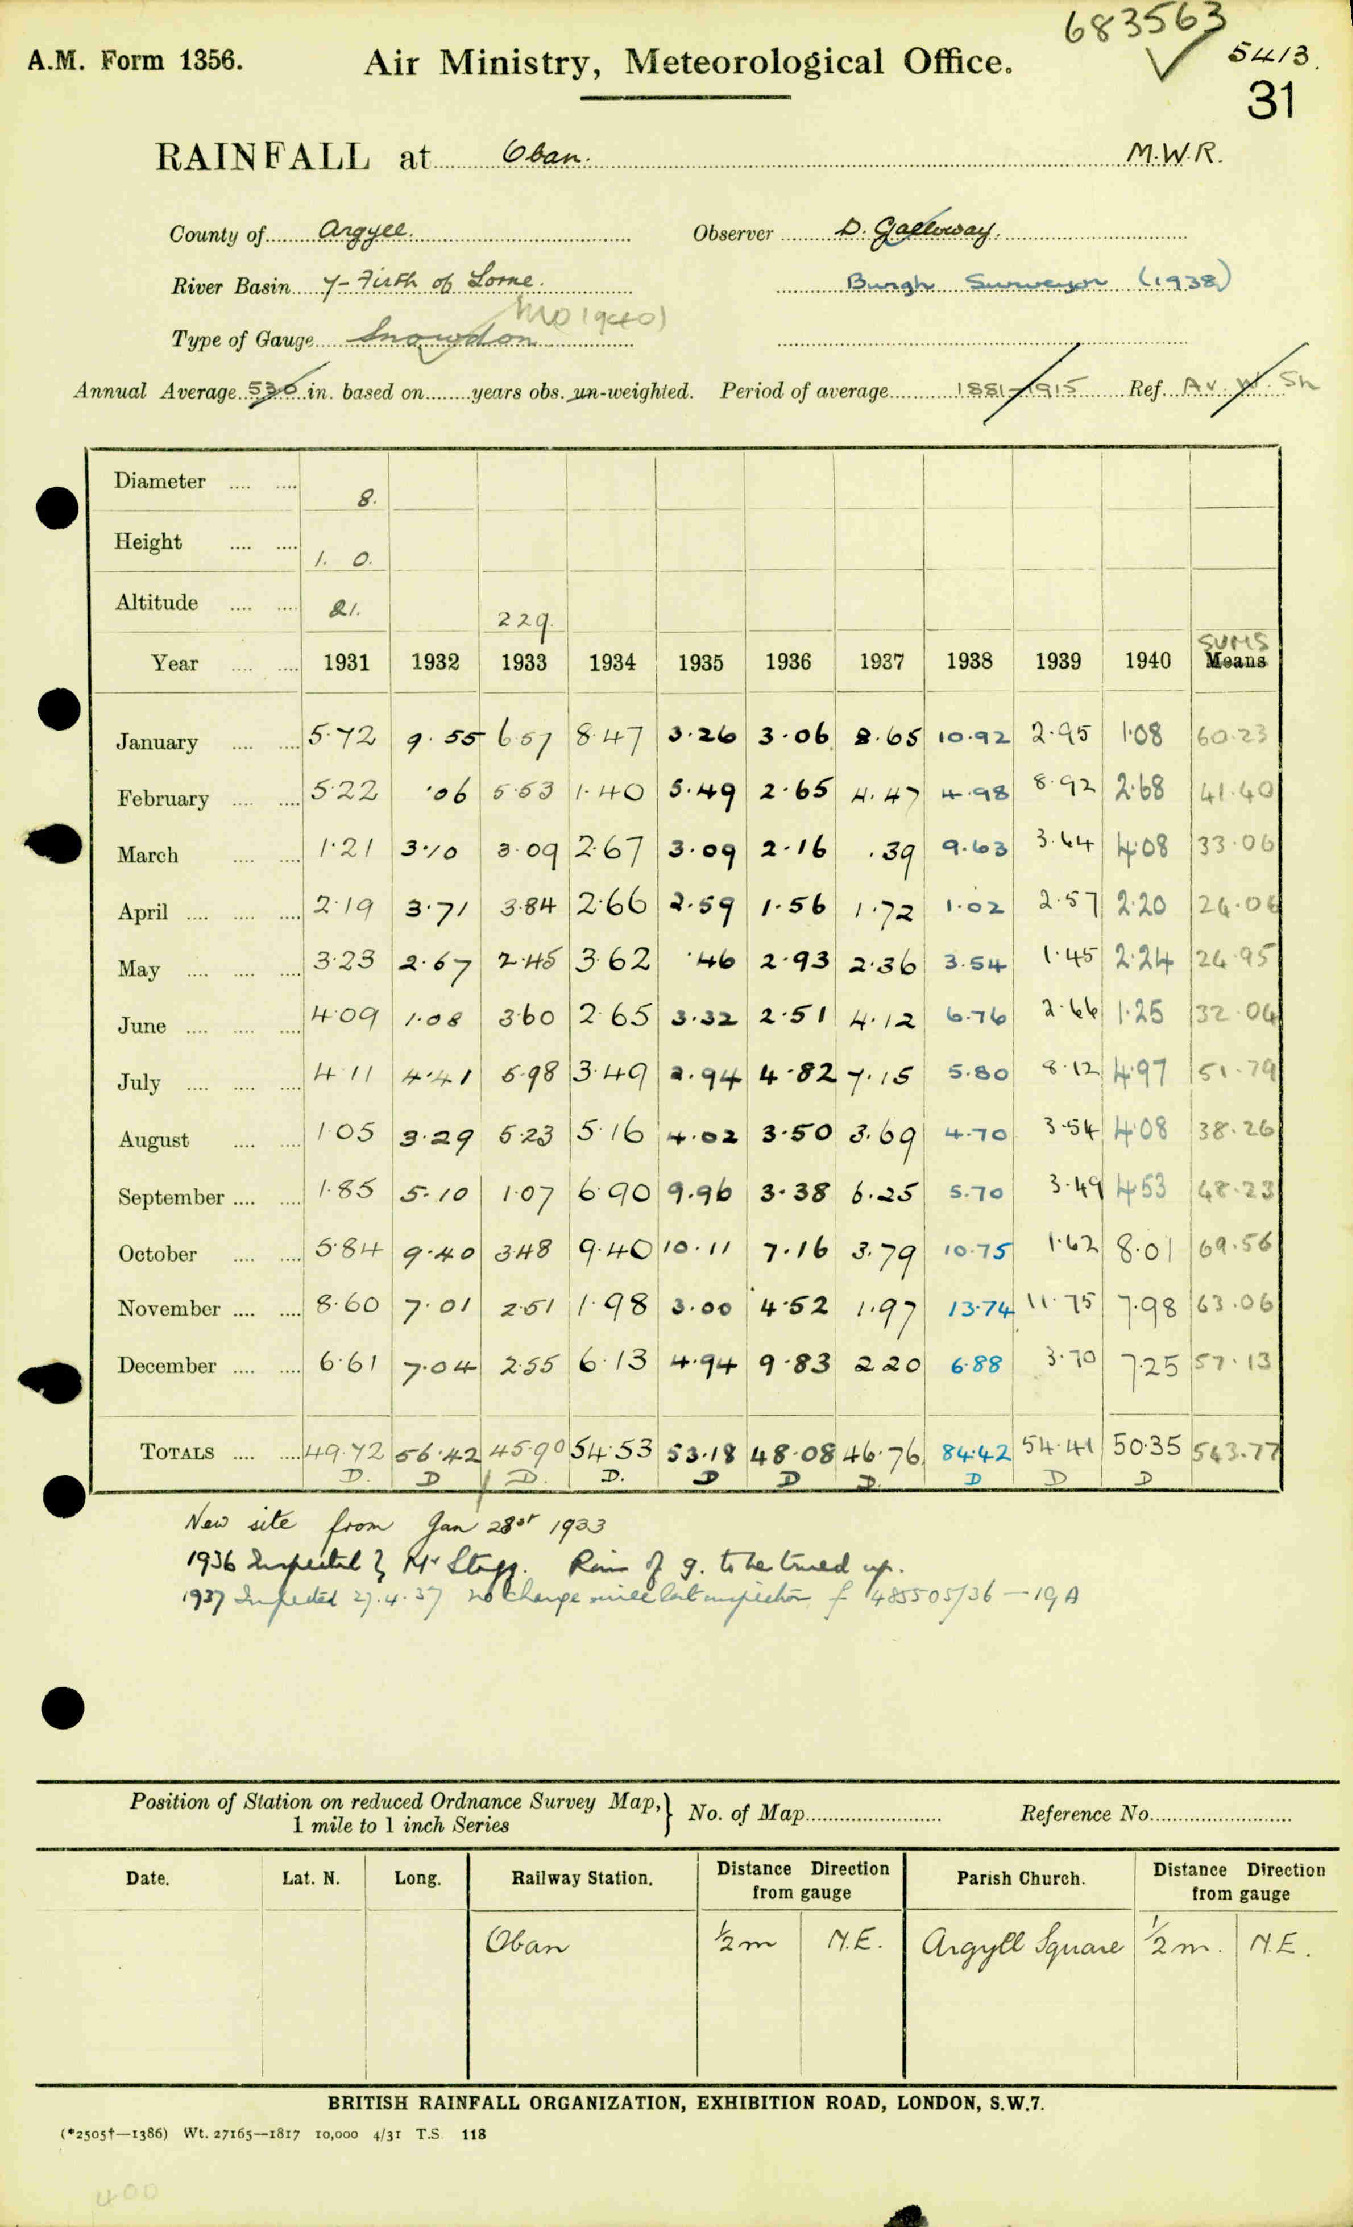 683563
5413.
A.M. Form 1356. Air Ministry, Meteorological Office.
31
RAINFALL at Oban. M.W.R.
County of Argyll. Observer D. Galloway.
River Basin 7- Firth of Lorne. Burgh Surveyor (1938)
MO (940)
Type of Gauge Snowdon
Annual Average 530 in. based on years obs. un-weighted. Period of average 1881-1915 Ref. Av. W. Sh
Diameter 8.
Height 1. 0.
Altitude 21. 229.
SUMS
Year 1931 1932 1933 1934 1935 1936 1937 1938 1939 1940 Means
January 5.72 9.55 6.57 8.47 3.26 3.06 8.65 10.92 2.95 1.08 60.23
February 5.22 .06 5.53 1.40 5.49 2.65 4.47 4.98 8.92 2.68 41.40
March 1.21 3.10 3.09 2.67 3.09 2.16 .39 9.63 3.64 4.08 33.06
April 2.19 3.71 3.84 2.66 2.59 1.56 1.72 1.02 2.57 2.20 24.06
May 3.23 2.67 2.45 3.62 .46 2.93 2.36 3.54 1.45 2.24 24.95
June 4.09 1.08 3.60 2.65 3.32 2.51 4.12 6.76 2.66 1.25 32.04
July 4.11 4.41 5.98 3.49 2.94 4.82 7.15 5.80 8.12 4.97 51.79
August 1.05 3.29 5.23 5.16 4.02 3.50 3.69 4.70 3.54 4.08 38.26
September 1.85 5.10 1.07 6.90 9.96 3.38 6.25 5.70 3.49 4.53 48.23
October 5.84 9.40 3.48 9.40 10.11 7.16 3.79 10.75 1.62 8.01 69.56
November 8.60 7.01 2.51 1.98 3.00 4.52 1.97 13.74 11.75 7.98 63.06
December 6.61 7.04 2.55 6.13 4.94 9.83 2.20 6.88 3.70 7.25 57.13
TOTALS 49.72 56.42 45.90 54.53 53.18 48.08 46.76 84.42 54.41 50.35 543.77
D. D D. D. D D D. D D D
New site from Jan 28st 1933
1936 Inspected by Mr Stagg. Rim of g. to be trued up.
1937 Inspected 27.4.37 no change since last inspection f 485505/36 - 19A
Position of Station on reduced Ordnance Survey Map, 1 mile to 1 inch Series No. of Map Reference No.
Date. Lat. N. Long. Railway Station. Distance Direction from gauge Parish Church. Distance Direction from gauge
Oban ½m N.E. Argyll Square ½m. N.E.
BRITISH RAINFALL ORGANIZATION, EXHIBITION ROAD, LONDON, S.W.7.
(*2505†—1386) Wt. 27165—1817 10,000 4/31 T.S. 118
400